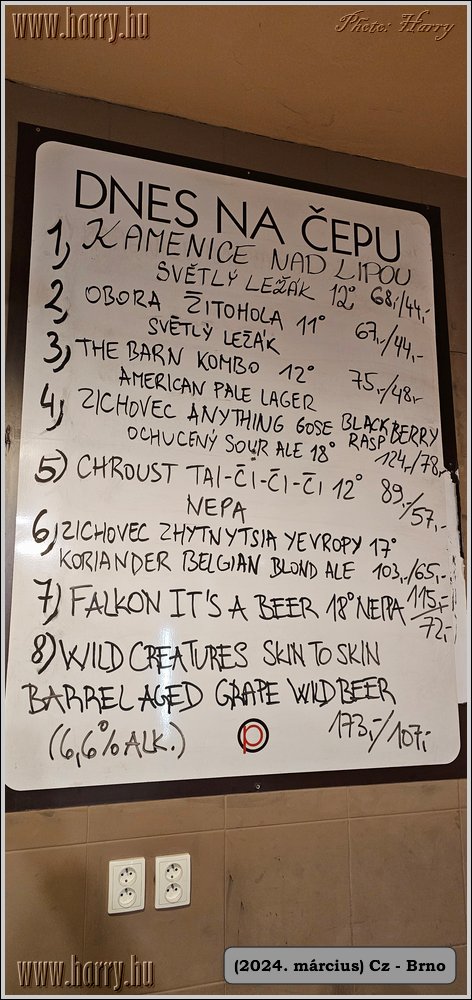 www.harry.hu
Photo: Harry
DNES NA ČEPU
1) KAMENICE NAD LIPOU
SVĚTLÝ LEŽÁK 12° 68,-/44,-
2) OBORA ŽITOHOLA 11°
SVĚTLÝ LEŽÁK 67,-/44,-
3) THE BARN KOMBO 12°
AMERICAN PALE LAGER 75,-/48,-
4) ZICHOVEC ANYTHING GOSE BLACKBERRY
RASPBERRY
OCHUCENÝ SOUR ALE 18° 124,-/78,-
5) CHROUST TAI-ČI-ČI-ČI 12° 89,-/57,-
NEPA
6) ZICHOVEC ZHYTNYTSIA YEVROPY 17°
KORIANDER BELGIAN BLOND ALE 103,-/65,-
7) FALKON IT'S A BEER 18° NEIPA 115,-/72,-
8) WILD CREATURES SKIN TO SKIN
BARREL AGED GRAPE WILD BEER
(6,6% ALK.) 173,-/107,-
p
www.harry.hu
(2024. március) Cz - Brno